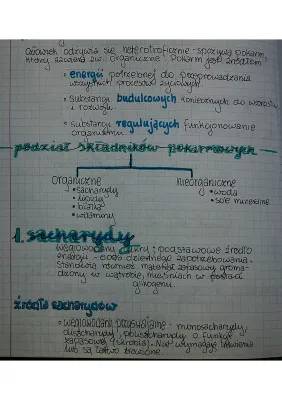 Człowiek odżywia się heterotroficznie - spożywa pokarm,
który zawiera zw. organiczne. Pokarm jest źródłem:
• energii potrzebnej do przeprowadzania
wszystkich procesów życiowych
• substancji budulcowych koniecznych do wzrostu
i rozwoju
• substancji regulujących funkcjonowanie
organizmu
podział składników pokarmowych
organiczne nieorganiczne
• sacharydy • woda
• tłuszcze • sole mineralne
• białka
• witaminy
1. sacharydy
węglowodany, cukry; podstawowe źródło
energii - dziennego zapotrzebowania.
Stanowią również materiał zapasowy groma-
dzony w wątrobie, mięśniach w postaci
glikogenu.
źródła sacharydów
• węglowodany przyswajalne - monosacharydy,
disacharydy, polisacharydy o funkcji
zapasowej (skrobia). Nie wymagają trawienia
lub są łatwo trawione